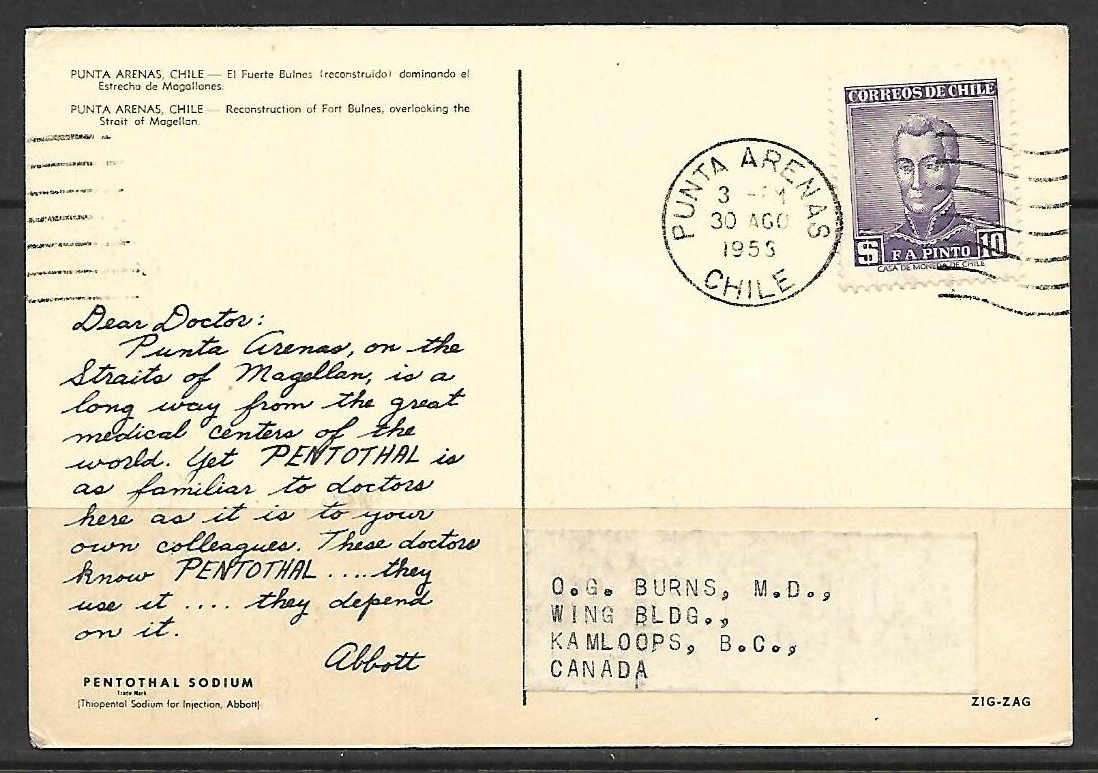 PUNTA ARENAS, CHILE — El Fuerte Bulnes (reconstruido) dominando el
Estrecho de Magallanes.
PUNTA ARENAS, CHILE — Reconstruction of Fort Bulnes, overlooking the
Strait of Magellan.
CORREOS DE CHILE
$ F A PINTO 10
CASA DE MONEDA DE CHILE
PUNTA ARENAS
3
30 AGO
CHILE
Dear Doctor:
Punta Arenas, on the
Straits of Magellan, is a
long way from the great
medical centers of the
world. Yet PENTOTHAL is
as familiar to doctors
here as it is to your
own colleagues. These doctors
know PENTOTHAL .... they
use it .... they depend
on it.
Abbott
PENTOTHAL SODIUM
Trade Mark
(Thiopental Sodium for Injection, Abbott)
O.G. BURNS, M.D.,
WING BLDG.,
KAMLOOPS, B.C.,
CANADA
ZIG-ZAG